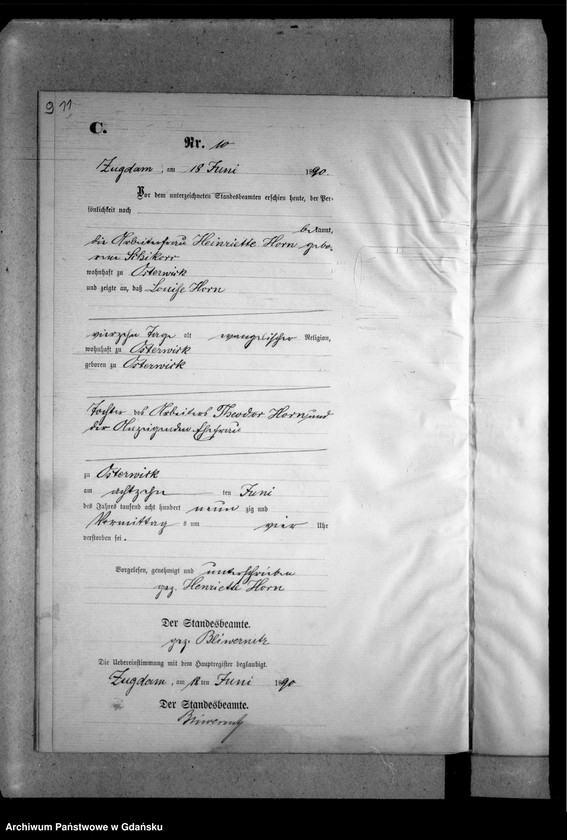 9 11
C.
Nr. 10
Zugdam, am 18 Juni 1890.
Vor dem unterzeichneten Standesbeamten erschien heute, der Per-
sönlichkeit nach
bekannt,
die Arbeiterfrau Heinriette Horn gebo-
rene Schikorr
wohnhaft zu Osterwick
und zeigte an, daß Louise Horn
vierzehn Tage alt evangelischer Religion,
wohnhaft zu Osterwick
geboren zu Osterwick
Tochter des Arbeiters Theodor Horn und
der Anzeigenden Ehefrau
zu Osterwick
am achtzehn ten Juni
des Jahres tausend acht hundert neun zig und
Vormittag s um vier Uhr
verstorben sei.
Vorgelesen, genehmigt und unterschrieben
gez. Henriette Horn
Der Standesbeamte.
gez. Bliwernitz
Die Uebereinstimmung mit dem Hauptregister beglaubigt.
Zugdam, am 18 ten Juni 1890
Der Standesbeamte.
Archiwum Państwowe w Gdańsku